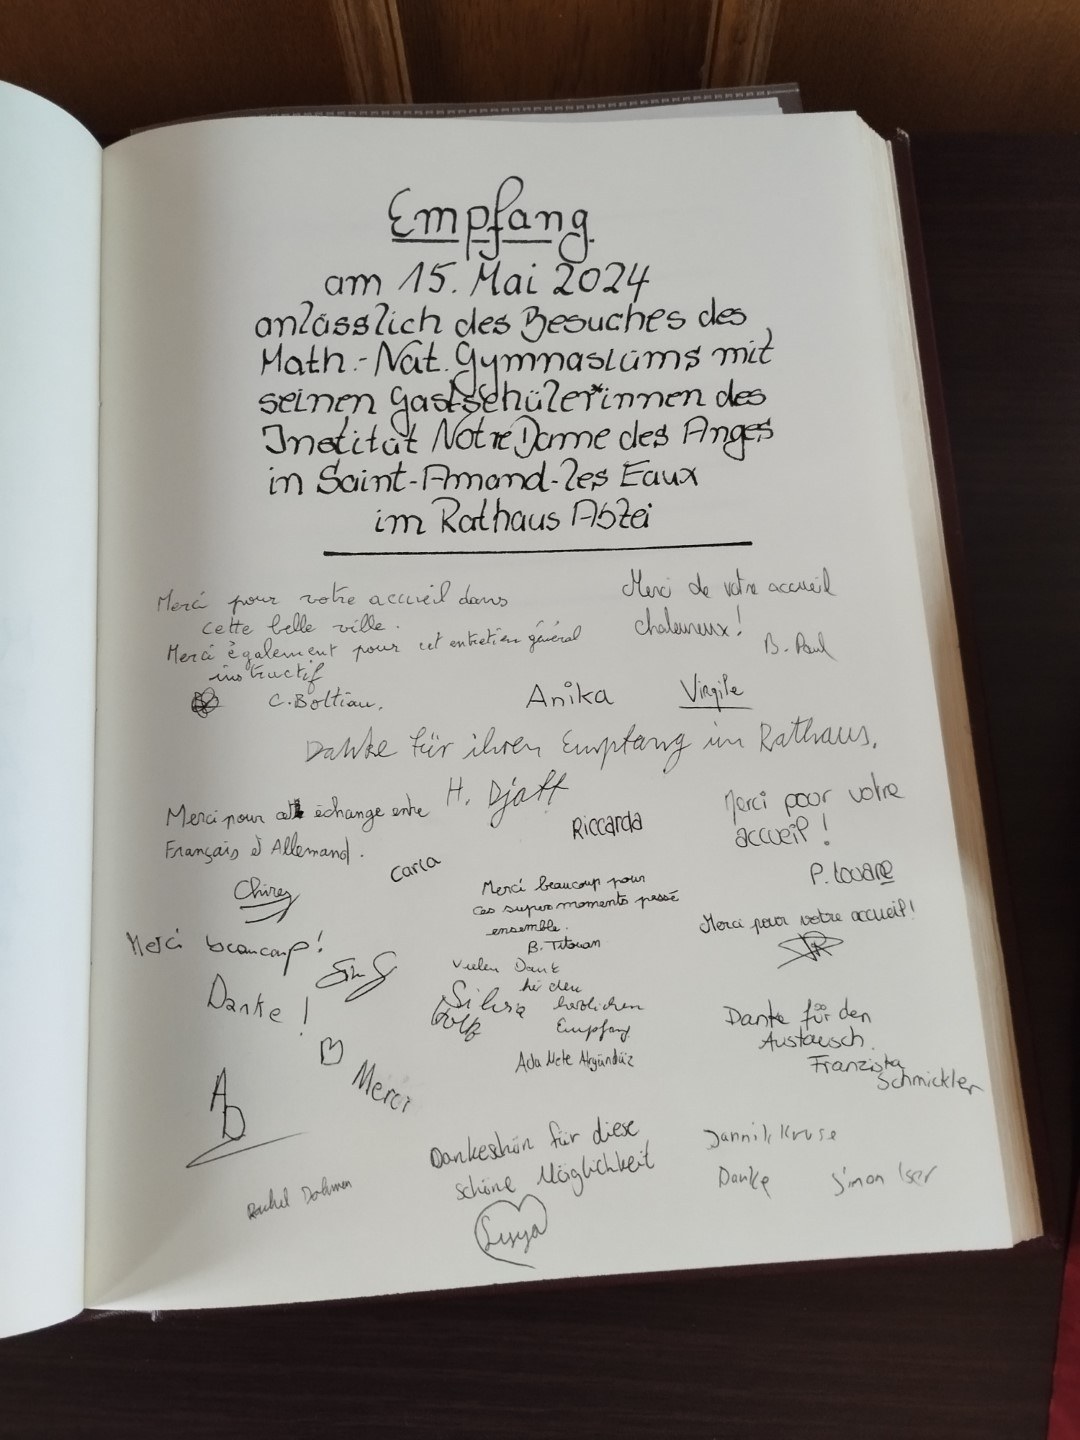 Empfang
am 15. Mai 2024
anlässlich des Besuches des
Math.-Nat. Gymnasiums mit
seinen Gastschüler*innen des
Institut Notre Dame des Anges
in Saint-Amand-les Eaux
im Rathaus Abtei
Merci pour votre accueil dans
cette belle ville.
Merci également pour cet entretien général
instructif
C. Boltiau.
Merci de votre accueil
chaleureux!
B. Paul
Anika
Virgile
Danke für ihren Empfang im Rathaus.
H. Djaff
Merci pour échange entre
Français et Allemand.
Riccarda
Merci pour votre
accueil!
P. Louane
Carla
Merci beaucoup pour
ces super moments passé
ensemble.
B. Titouan
Merci pour votre accueil!
Merci beaucoup!
Danke!
Vielen Dank
herzlichen
Empfang
Silvia
Ada Mete Akgündüz
Danke für den
Austausch.
Franziska
Schmickler
B
Merci
AD
Dankeschön für diese
schöne Möglichkeit
Jannik Kruse
Danke
Simon Iser
Rachel Dahmen